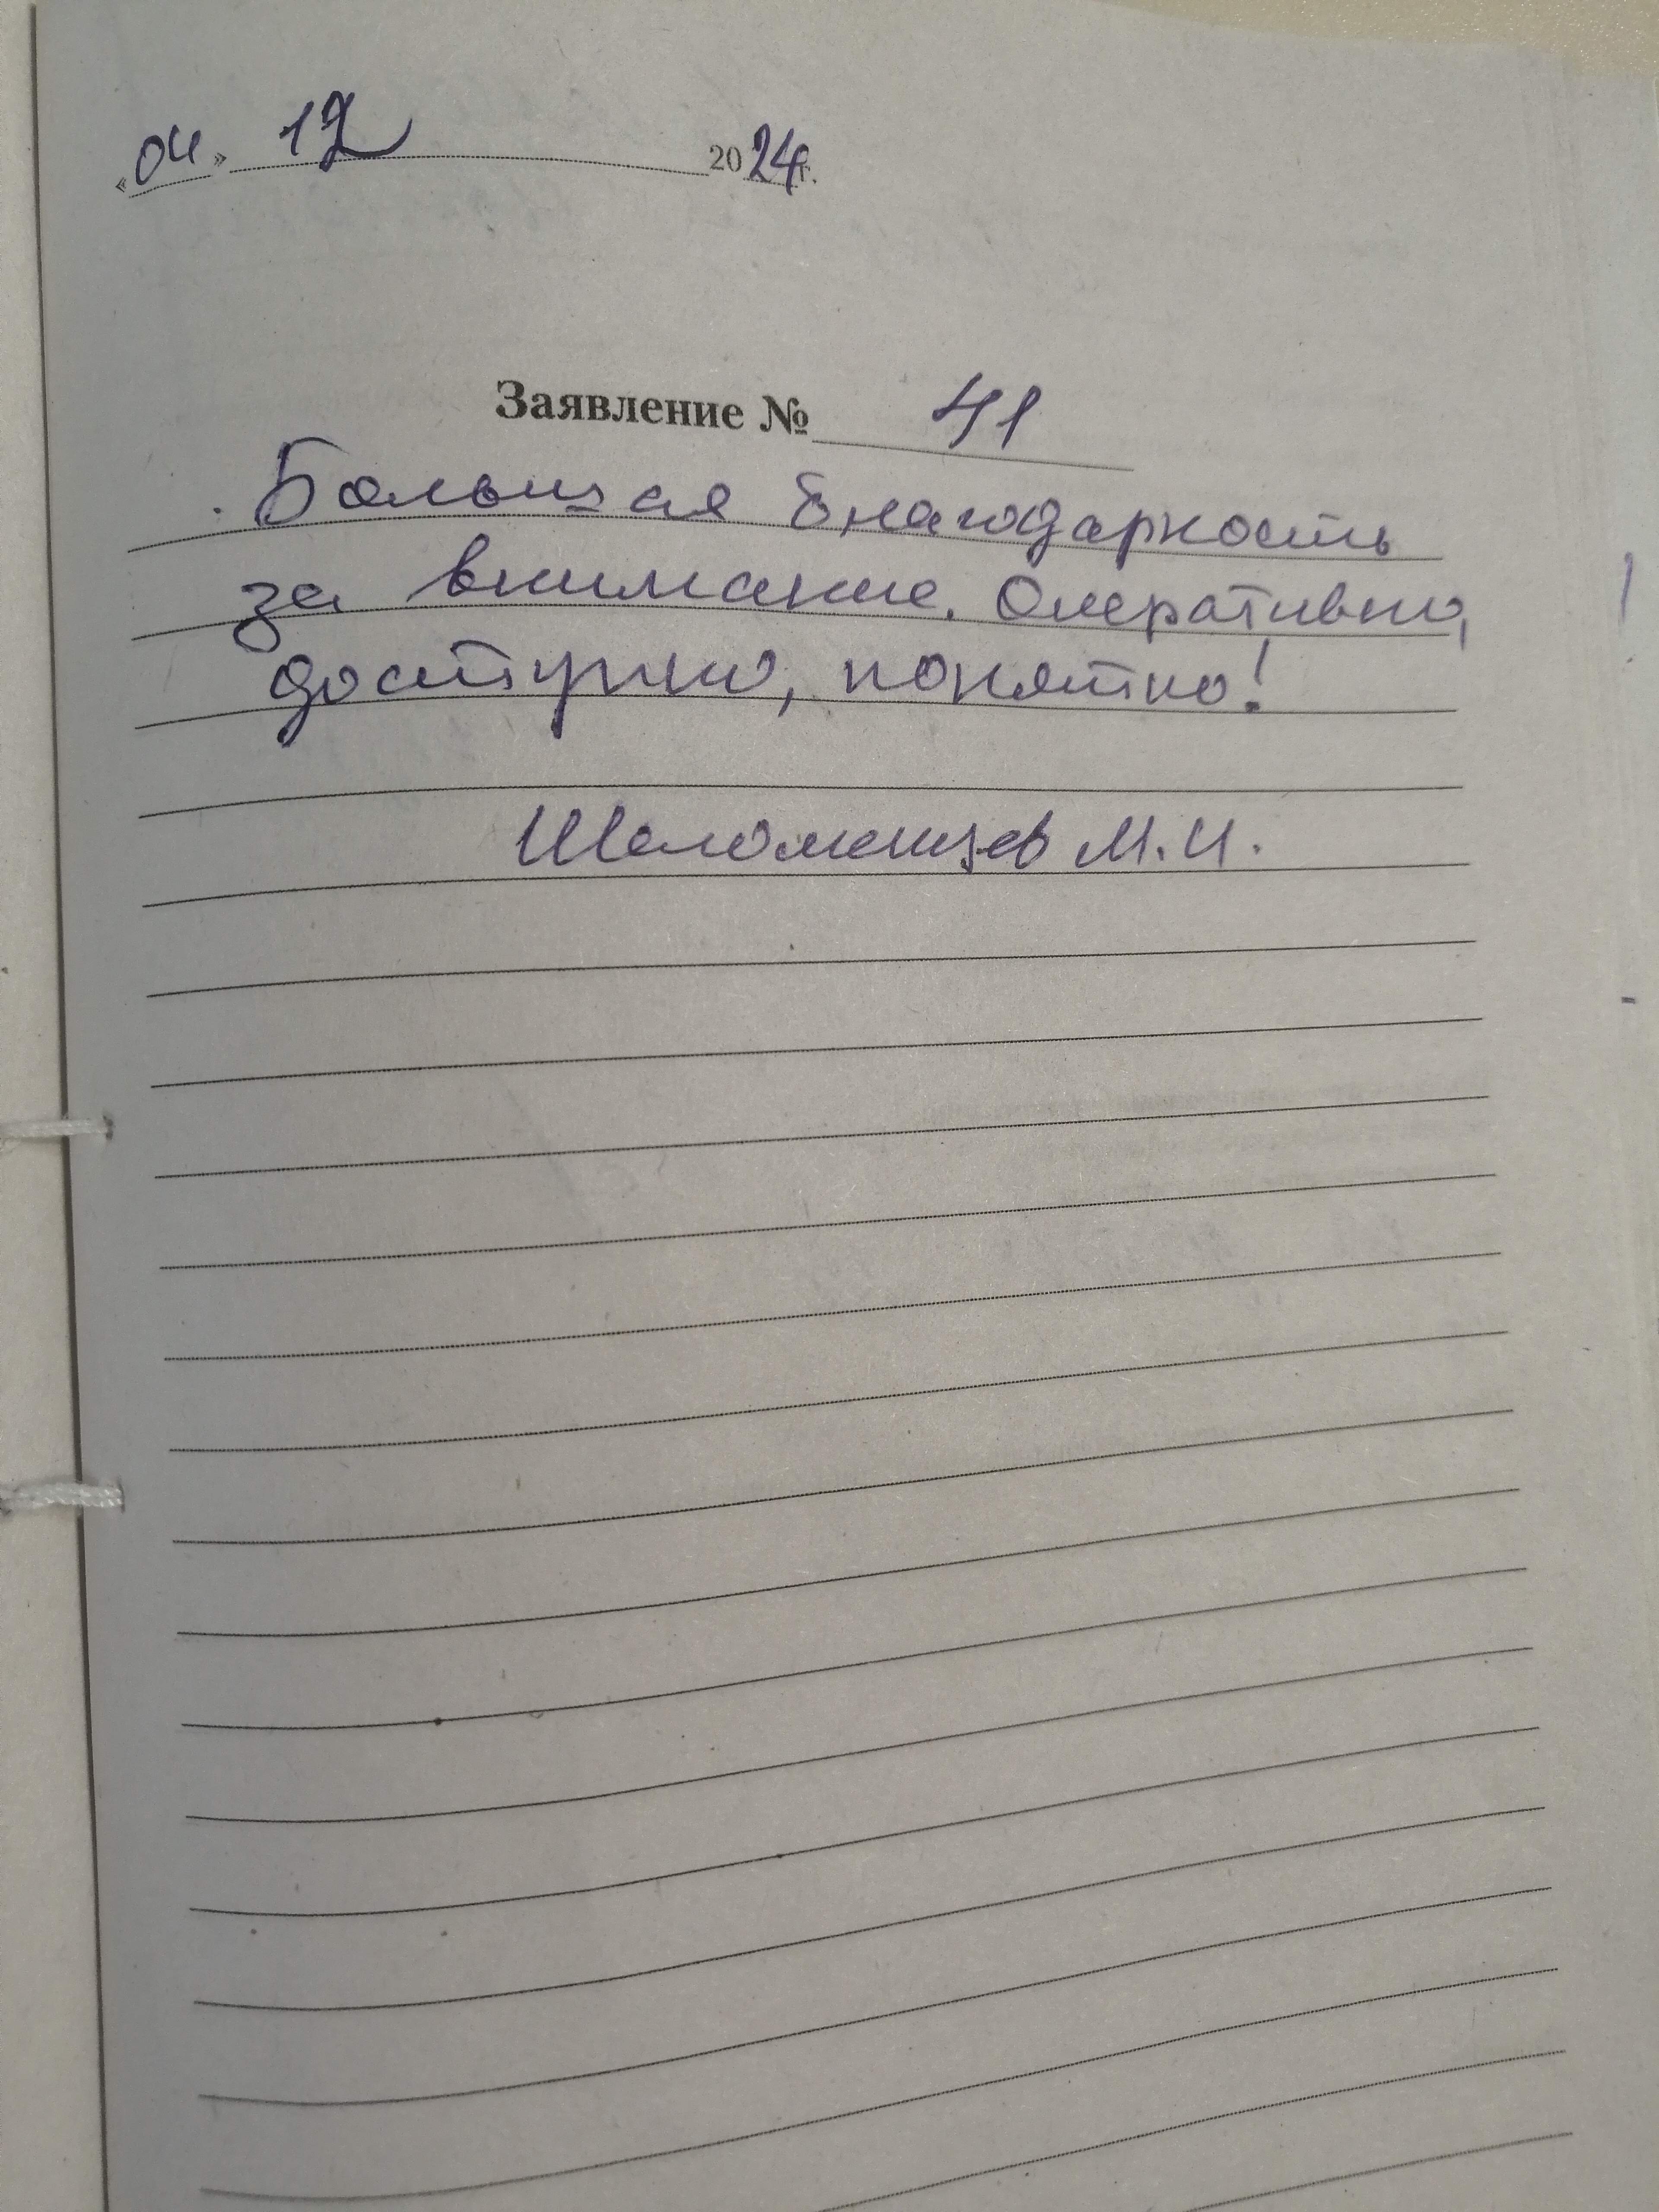 «04» 12 2024г.
Заявление № 41
Большая благодарность
за внимание. Оперативно,
доступно, понятно!
Шеломенцев М.И.